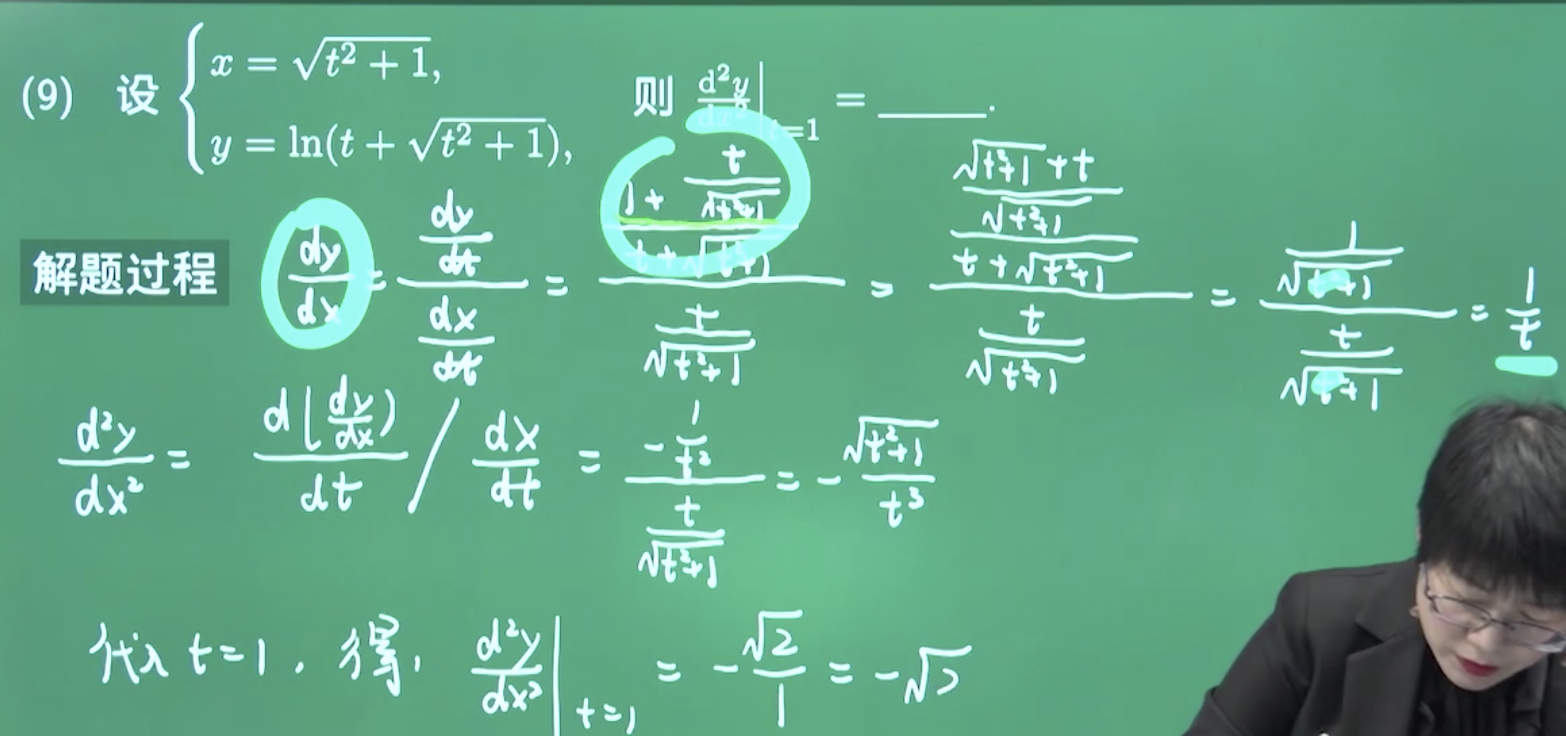 (9) 设 { x = √(t² + 1), y = ln(t + √(t² + 1)), 则 d²y/dx² |_{t=1} = ______.
解题过程
dy/dx = (dy/dt)/(dx/dt) = ((1 + t/√(t²+1))/(t + √(t²+1)))/(t/√(t²+1)) = (((√(t²+1) + t)/√(t²+1))/(t + √(t²+1)))/(t/√(t²+1)) = (1/√(t²+1))/(t/√(t²+1)) = 1/t
d²y/dx² = d(dy/dx)/dt / dx/dt = (-1/t²)/(t/√(t²+1)) = -√(t²+1)/t³
代入 t=1, 得, d²y/dx² |_{t=1} = -√2/1 = -√2